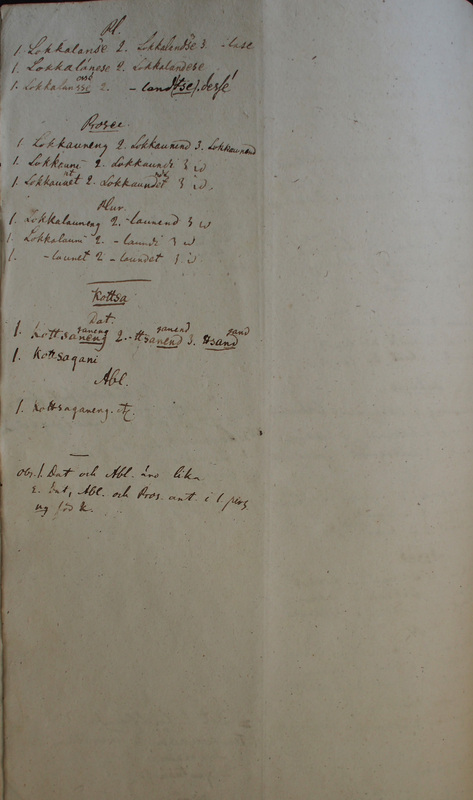 Pl.
1. Lokkalanse 2. Lokkalandse 3. -lase
1. Lokkalánese 2. Lokkalandese
1. Lokkalansse 2. -landtse).desse
Prosec.
1. Lokkauneng 2. Lokkaunend 3. Lokkaunend
1. Lokkauni 2. Lokkaundi 3 id
1. Lokkaunet 2. Lokkaundet 3 id.
Plur.
1. Lokkalauneng 2. -launend 3 id
1. Lokkalauni 2. -laundi 3 id
1. -launet 2 -laundet 3 id
Kottsa
Dat.
ganeng ganend gand
1. Kottsaneng 2. -ttsanend 3. ttsand
1. Kottsagani
Abl.
1. Kottsaganeng. etc.
obs. 1. Dat och Abl. äro lika
2. Dat, Abl. och Pros. ant. i 1. pers